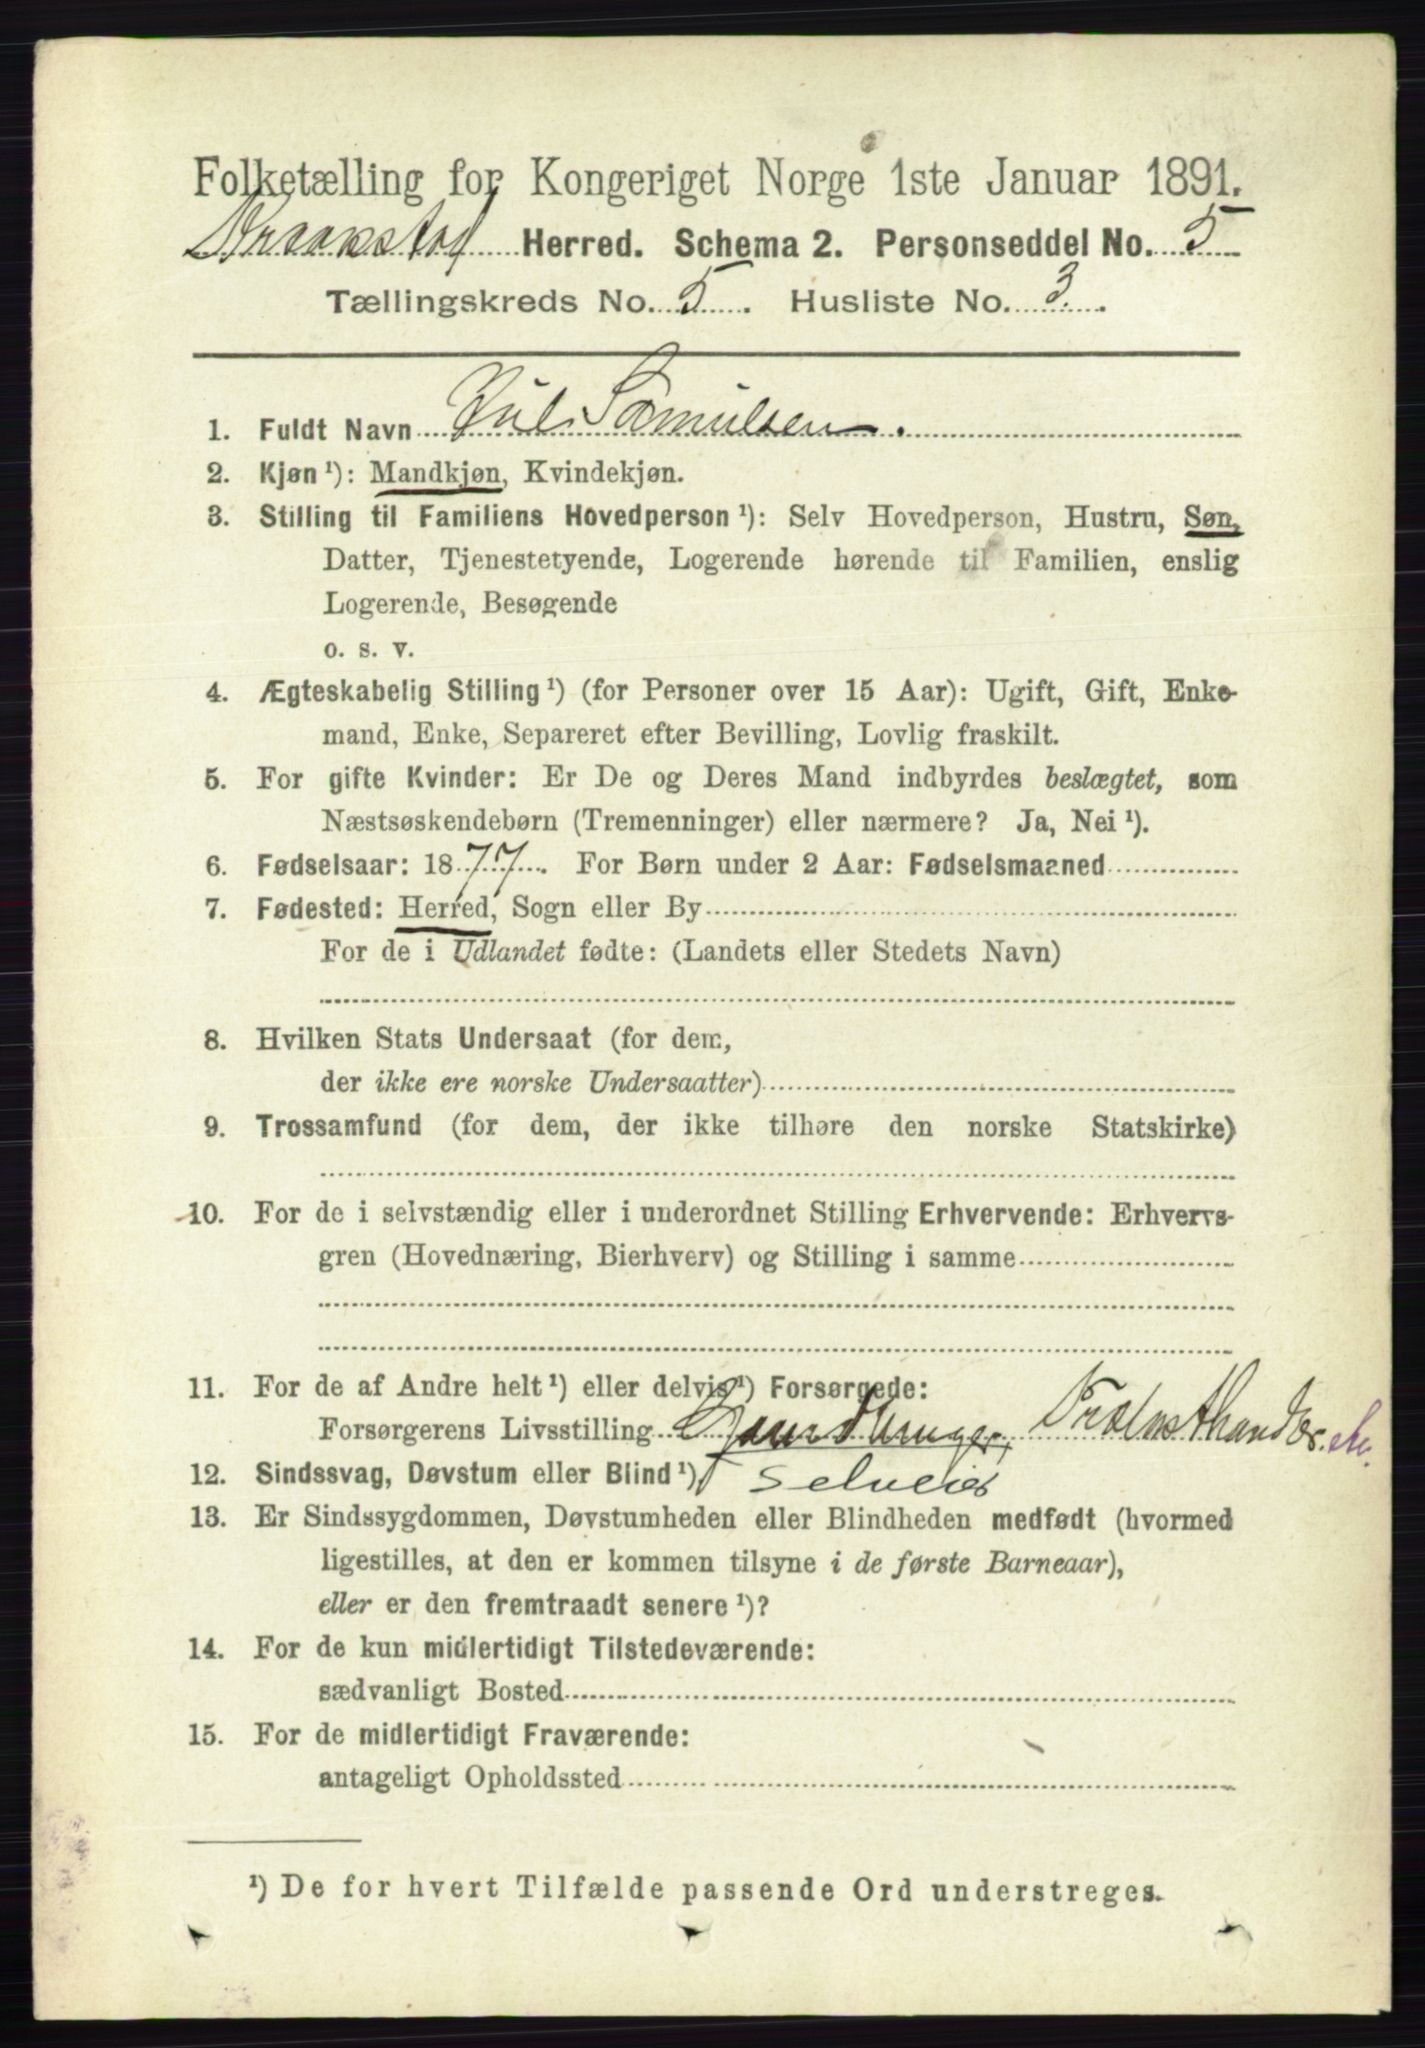 Folketælling for Kongeriget Norge 1ste Januar 1891.
Kraakstad Herred. Schema 2. Personseddel No. 5
Tællingskreds No. 5. Husliste No. 3.
1. Fuldt Navn Samulsen.
2. Kjøn ¹): Mandkjøn, Kvindekjøn.
3. Stilling til Familiens Hovedperson ¹): Selv Hovedperson, Hustru, Søn,
Datter, Tjenestetyende, Logerende hørende til Familien, enslig
Logerende, Besøgende
o. s. v.
4. Ægteskabelig Stilling ¹) (for Personer over 15 Aar): Ugift, Gift, Enke-
mand, Enke, Separeret efter Bevilling, Lovlig fraskilt.
5. For gifte Kvinder: Er De og Deres Mand indbyrdes beslægtet, som
Næstsøskendebørn (Tremenninger) eller nærmere? Ja, Nei ¹).
6. Fødselsaar: 1877. For Børn under 2 Aar: Fødselsmaaned
7. Fødested: Herred, Sogn eller By
For de i Udlandet fødte: (Landets eller Stedets Navn)
8. Hvilken Stats Undersaat (for dem,
der ikke ere norske Undersaatter)
9. Trossamfund (for dem, der ikke tilhøre den norske Statskirke)
10. For de i selvstændig eller i underordnet Stilling Erhvervende: Erhvervs-
gren (Hovednæring, Bierhverv) og Stilling i samme
11. For de af Andre helt ¹) eller delvis ¹) Forsørgede:
Forsørgerens Livsstilling Gaardbruger, Trælasthandler.
12. Sindssvag, Døvstum eller Blind ¹), Selveier
13. Er Sindssygdommen, Døvstumheden eller Blindheden medfødt (hvormed
ligestilles, at den er kommen tilsyne i de første Barneaar),
eller er den fremtraadt senere ¹)?
14. For de kun midlertidigt Tilstedeværende:
sædvanligt Bosted
15. For de midlertidigt Fraværende:
antageligt Opholdssted
¹) De for hvert Tilfælde passende Ord understreges.